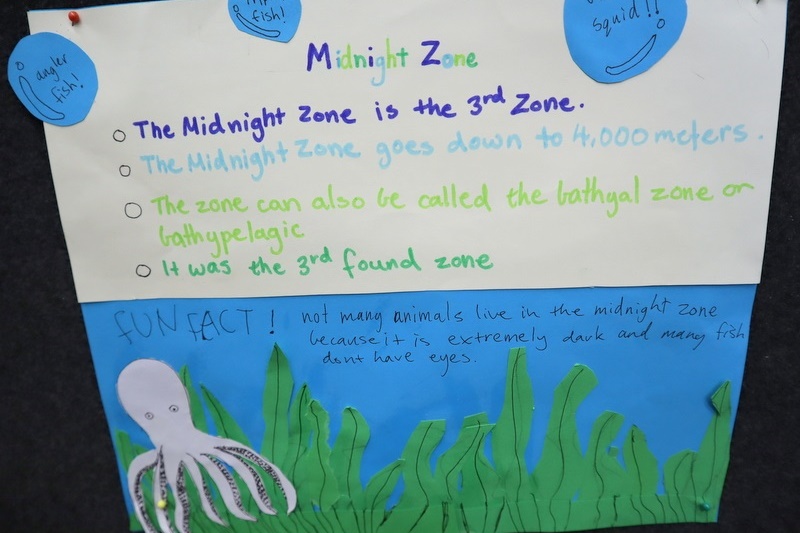 fish!
squid!!
angler
fish!
Midnight Zone
The Midnight Zone is the 3rd Zone.
The Midnight Zone goes down to 4,000 meters.
The zone can also be called the bathyal zone or
bathypelagic
It was the 3rd found zone
FUN FACT! not many animals live in the midnight zone
because it is extremely dark and many fish
dont have eyes.